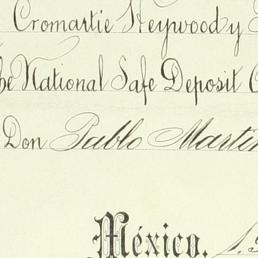 Cromartie Heywood y
he National Safe Deposit C
Don Pablo Martín
México.